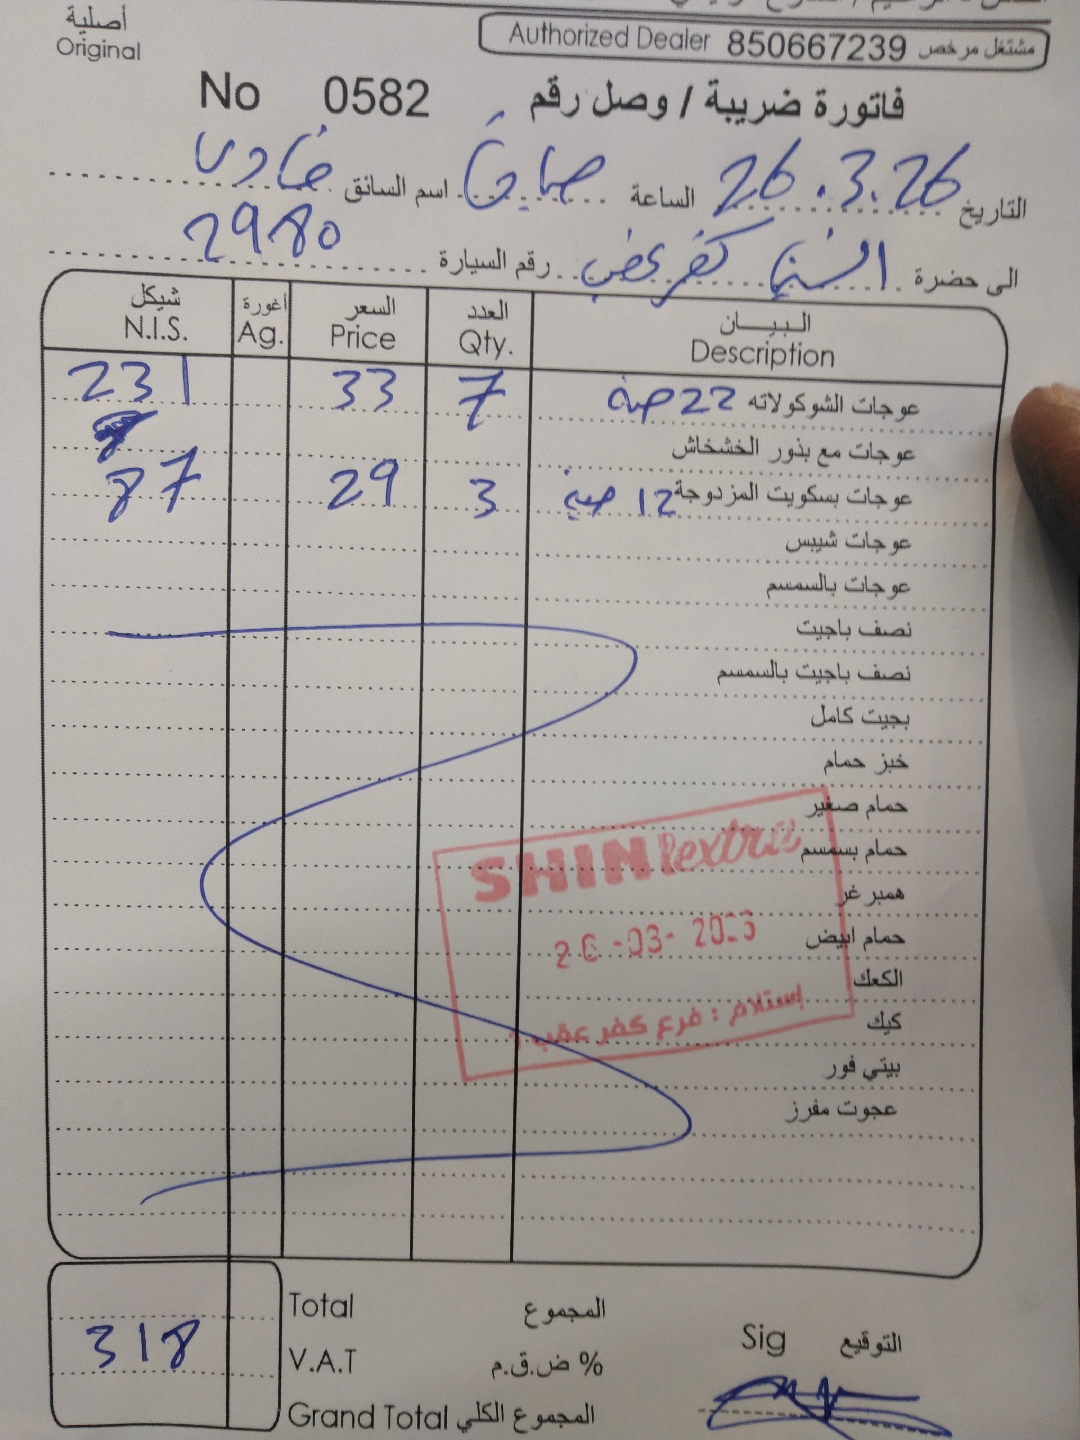 أصلية
Original
مشتغل مرخص 850667239 Authorized Dealer
فاتورة ضريبة / وصل رقم No 0582
التاريخ 26.3.26 الساعة اسم السائق
الى حضرة رقم السيارة 2980
البيــان العدد السعر أغورة شيكل
Description Qty. Price Ag. N.I.S.
عوجات الشوكولاته 22 حبة 7 33 231
عوجات مع بذور الخشخاش
عوجات بسكويت المزدوجة 12 حبة 3 29 87
عوجات شيبس
عوجات بالسمسم
نصف باجيت
نصف باجيت بالسمسم
بجيت كامل
خبز حمام
حمام صغير
حمام بسمسم
همبر غر
حمام ابيض
الكعك
كيك
بيتي فور
عجوت مفرز
SHINI extra
26-03-2026
إستلام : فرع كفر عقب
المجموع Total
318
% ض.ق.م V.A.T
المجموع الكلي Grand Total
التوقيع Sig